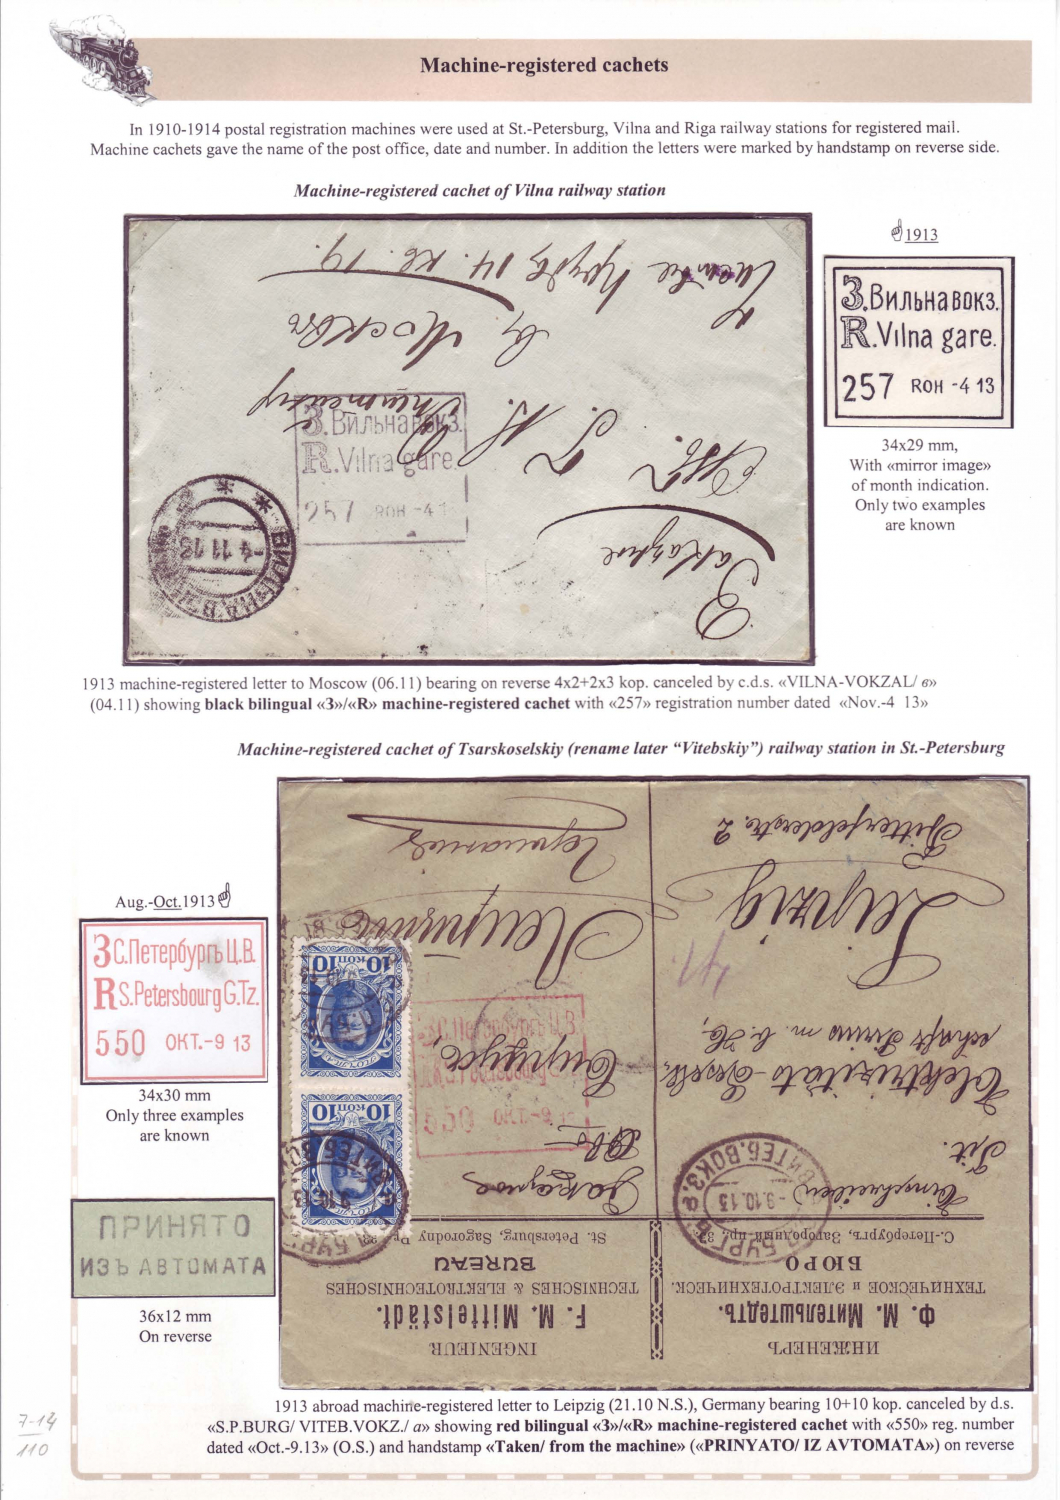 Machine-registered cachets
In 1910-1914 postal registration machines were used at St.-Petersburg, Vilna and Riga railway stations for registered mail.
Machine cachets gave the name of the post office, date and number. In addition the letters were marked by handstamp on reverse side.
Machine-registered cachet of Vilna railway station
въ Москвъ
З.Вильна вокз.
R.Vilna gare.
257 ROH -4 1
-4 11 13
Заказное
1913
З.Вильна вокз.
R.Vilna gare.
257 ROH -4 13
34x29 mm,
With «mirror image»
of month indication.
Only two examples
are known
1913 machine-registered letter to Moscow (06.11) bearing on reverse 4x2+2x3 kop. canceled by c.d.s. «VILNA-VOKZAL/ в»
(04.11) showing black bilingual «З»/«R» machine-registered cachet with «257» registration number dated «Nov.-4 13»
Machine-registered cachet of Tsarskoselskiy (rename later “Vitebskiy”) railway station in St.-Petersburg
Aug.-Oct.1913
З С.Петербургъ Ц.В.
R S.Petersbourg G.Tz.
550 ОКТ.-9 13
34x30 mm
Only three examples
are known
ПРИНЯТО
ИЗЪ АВТОМАТА
36x12 mm
On reverse
ИНЖЕНЕРЪ
Ф. М. Мительштедтъ.
ТЕХНИЧЕСКОЕ и ЭЛЕКТРОТЕХНИЧЕСК.
БЮРО
С.-Петербургъ, Загородный пр., 37.
INGENIEUR
F. M. Mittelstädt.
TECHNISCHES & ELEKTROTECHNISCHES
BUREAU
St. Petersburg, Sagorodny Pr.
Einschreiben
Elektrizitäts-Gesell-
schaft Sirius m. b. H.
Leipzig
Bitterfelderstr. 2
Заказное
Сиріусъ
Лейпцигъ
Германія
10 КОП 10
10 КОП 10
З С.Петербургъ Ц.В.
550 ОКТ.-9 1
БУРГЪ ВИТЕБ.ВОКЗ. а
-9.10.13
1913 abroad machine-registered letter to Leipzig (21.10 N.S.), Germany bearing 10+10 kop. canceled by d.s.
«S.P.BURG/ VITEB.VOKZ./ а» showing red bilingual «З»/«R» machine-registered cachet with «550» reg. number
dated «Oct.-9.13» (O.S.) and handstamp «Taken/ from the machine» («PRINYATO/ IZ AVTOMATA») on reverse
7-14
110